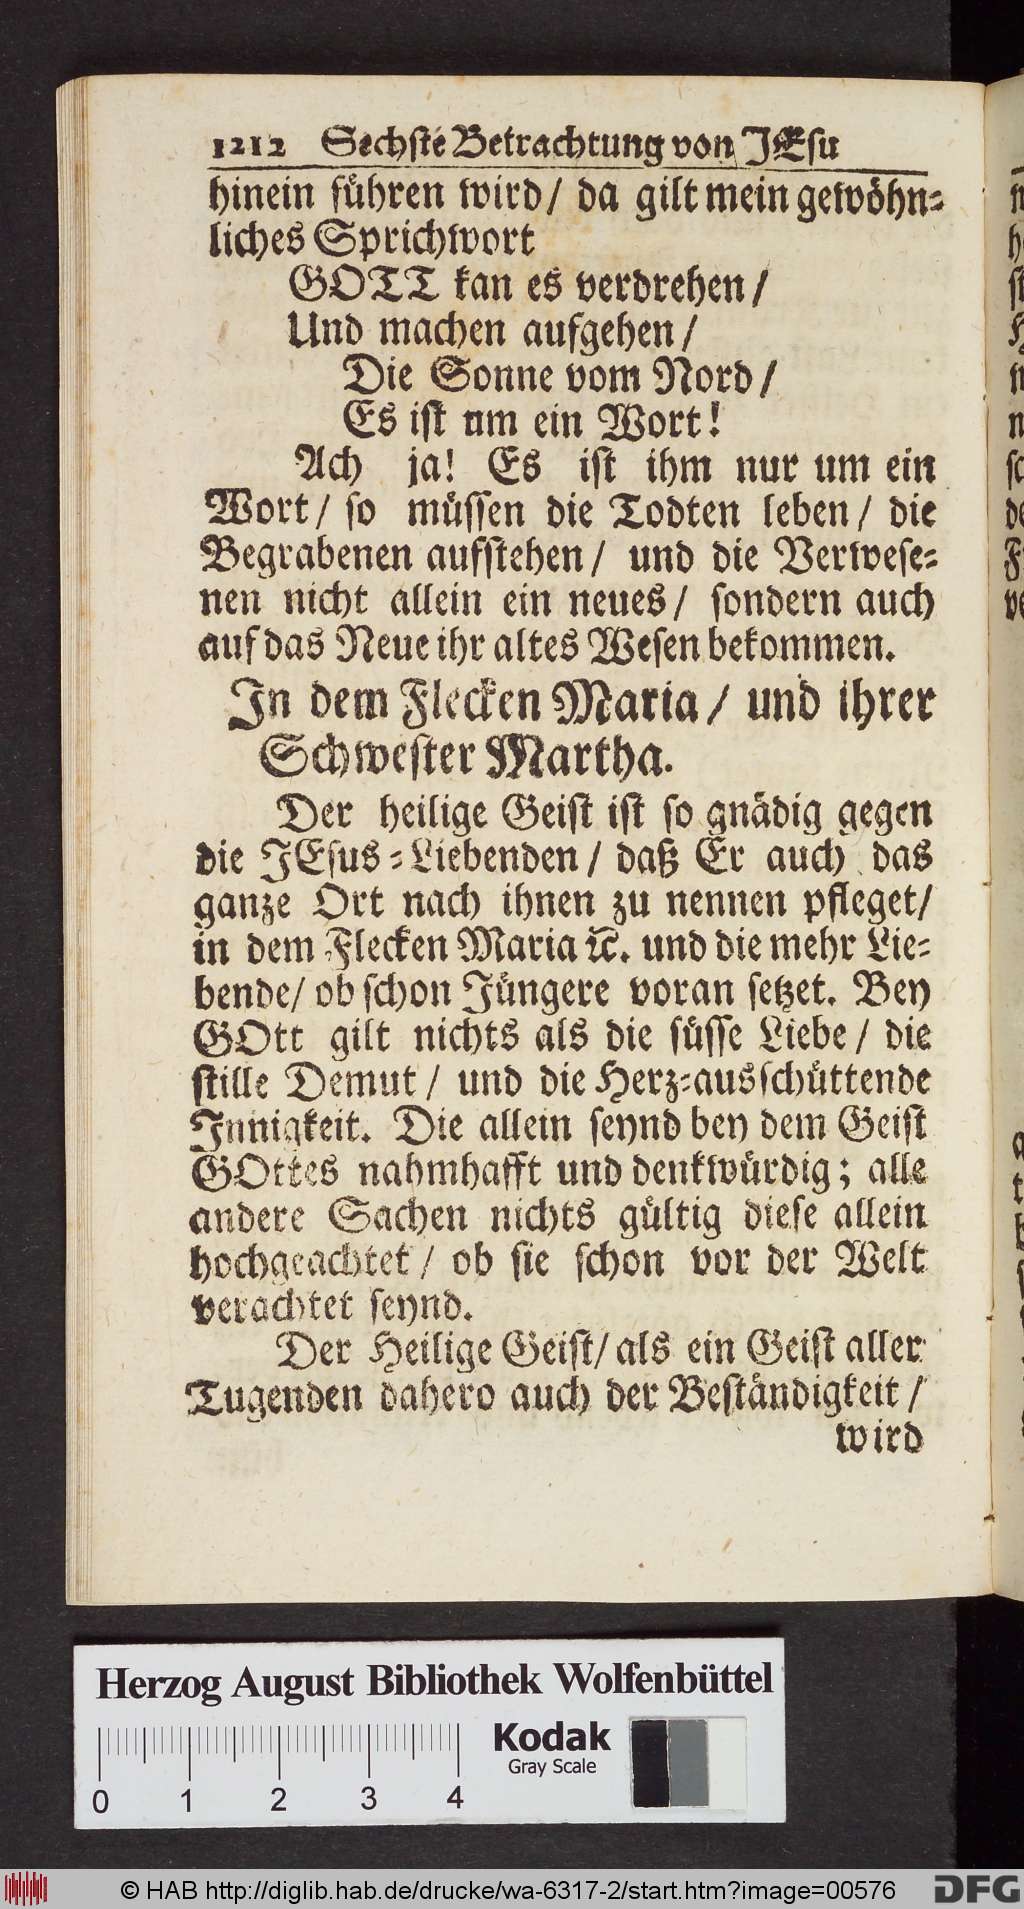 1212 Sechste Betrachtung von JEsu
hinein führen wird / da gilt mein gewöhn-
liches Sprichwort
GOTT kan es verdrehen /
Und machen aufgehen /
Die Sonne vom Nord /
Es ist um ein Wort!
Ach ja! Es ist ihm nur um ein
Wort / so müssen die Todten leben / die
Begrabenen aufstehen / und die Verwese-
nen nicht allein ein neues / sondern auch
auf das Neue ihr altes Wesen bekommen.
In dem Flecken Maria / und ihrer
Schwester Martha.
Der heilige Geist ist so gnädig gegen
die JEsus-Liebenden / daß Er auch das
ganze Ort nach ihnen zu nennen pfleget /
in dem Flecken Maria ꝛc. und die mehr Lie-
bende / ob schon Jüngere voran setzet. Bey
GOtt gilt nichts als die süsse Liebe / die
stille Demut / und die Herz-ausschüttende
Innigkeit. Die allein seynd bey dem Geist
GOttes nahmhafft und denkwürdig; alle
andere Sachen nichts gültig diese allein
hochgeachtet / ob sie schon vor der Welt
verachtet seynd.
Der Heilige Geist / als ein Geist aller
Tugenden dahero auch der Beständigkeit /
wird
Herzog August Bibliothek Wolfenbüttel
Kodak
Gray Scale
0 1 2 3 4
© HAB http://diglib.hab.de/drucke/wa-6317-2/start.htm?image=00576
DFG